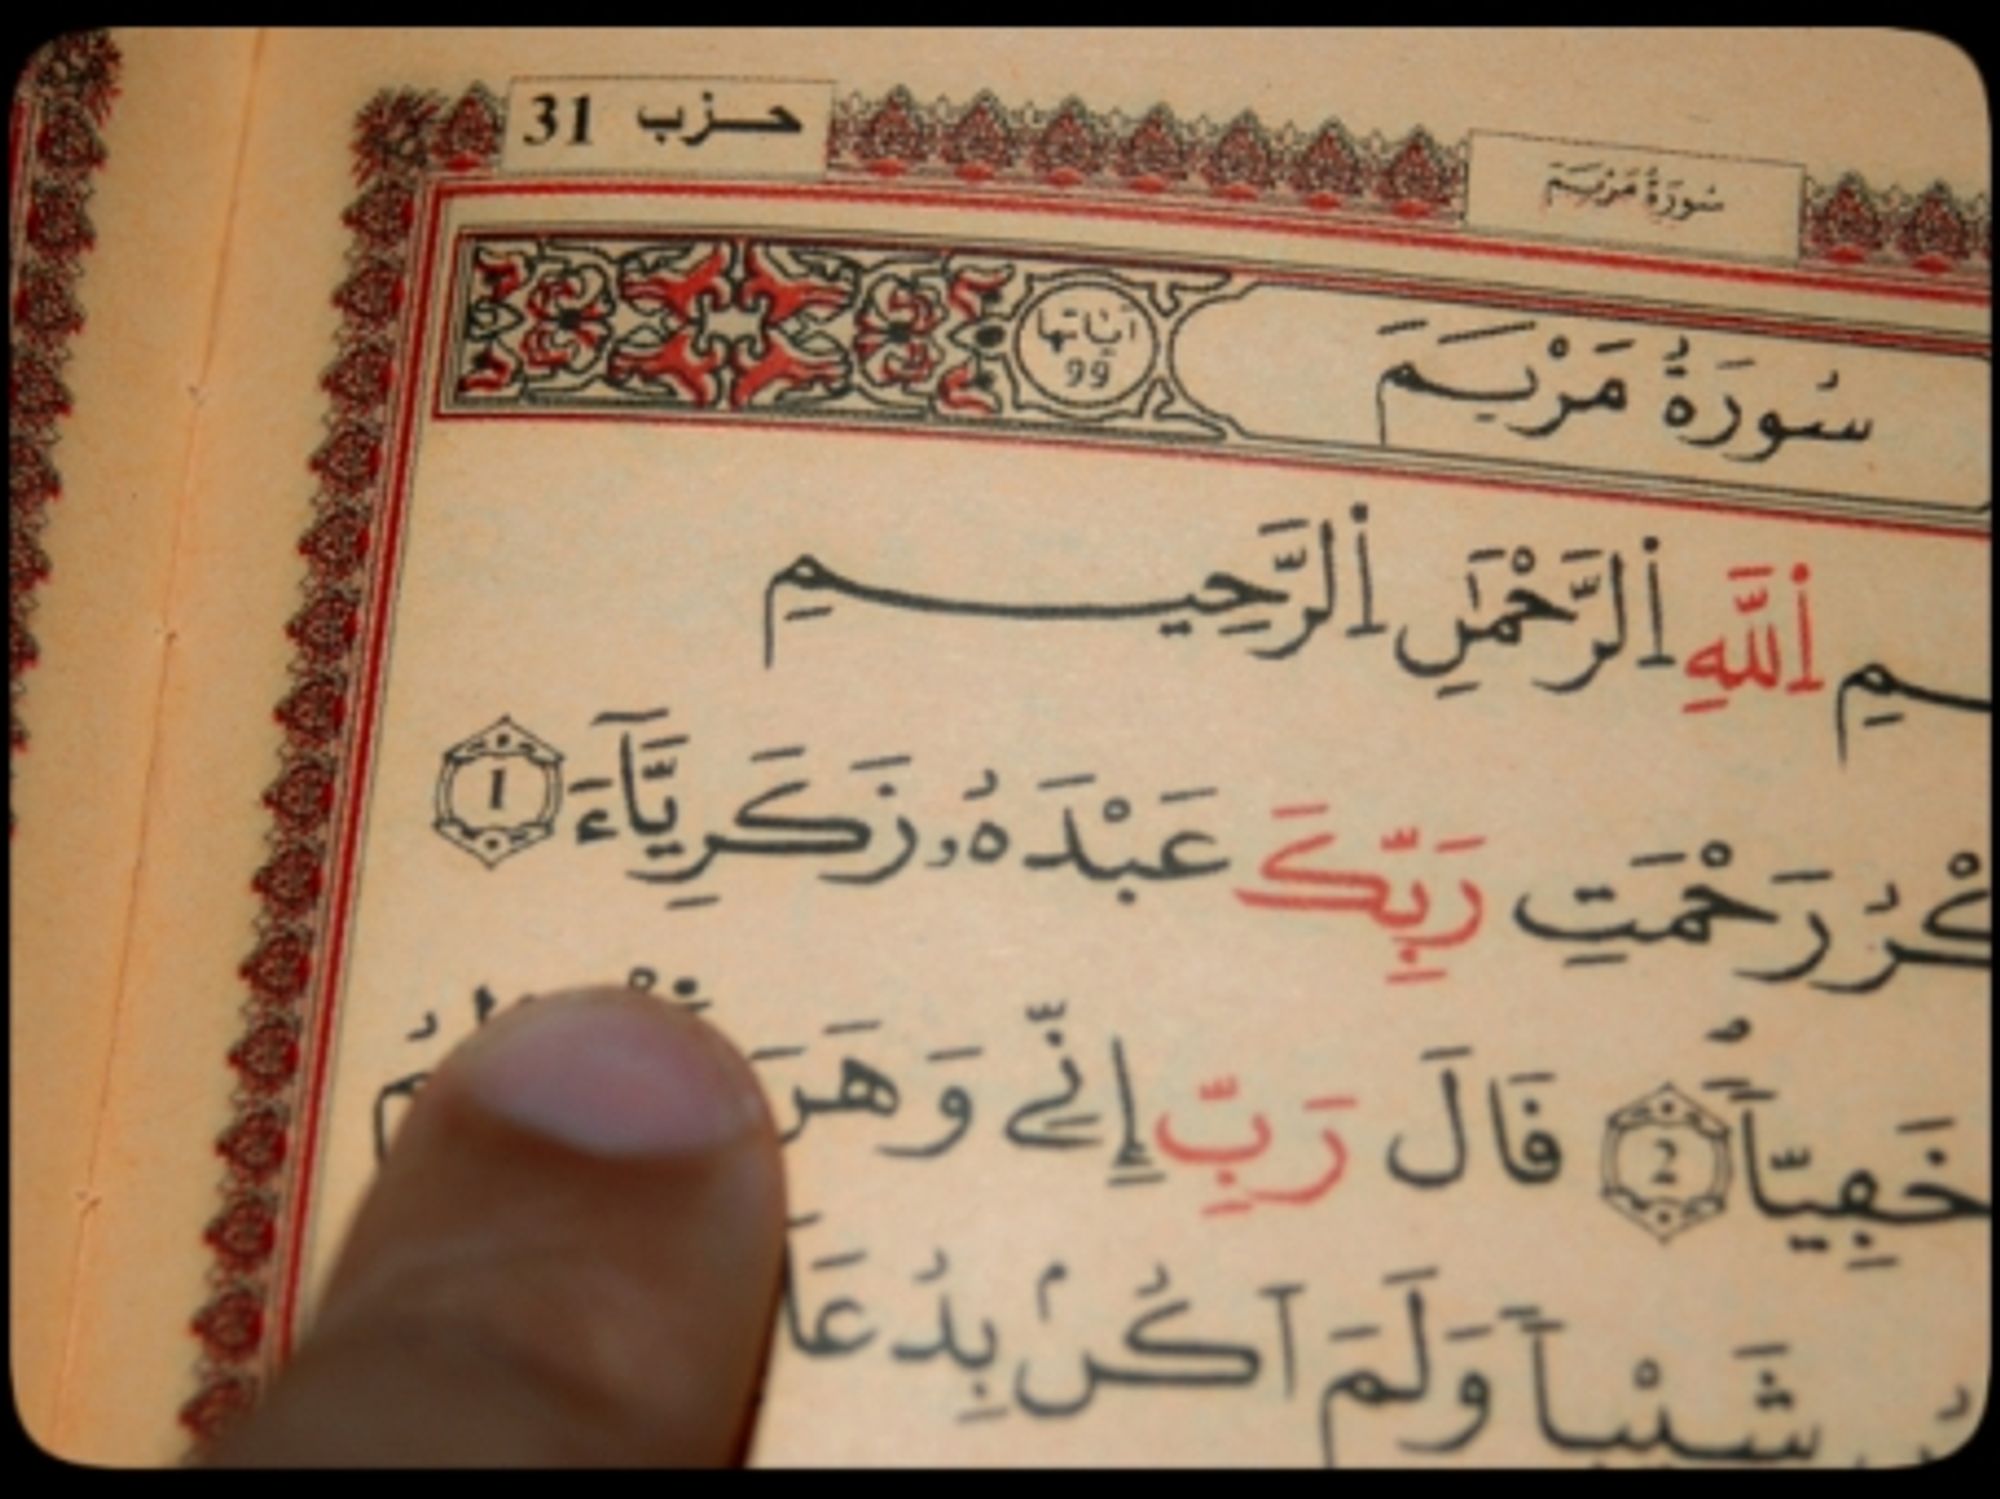 حزب 31
سُورَةُ مَرْيَمَ
سُورَةُ مَرْيَمَ
ءَايَاتُهَا
99
اِ۬للَّهِ اِ۬لرَّحْمَٰنِ اِ۬لرَّحِيمِ
رَحْمَتِ رَبِّكَ عَبْدَهُۥ زَكَرِيَّآءَ 1
خَفِيّاٗ 2 قَالَ رَبِّ إِنِّے وَهَنَ
شَيْباٗ وَلَمَ اَكُنۢ بِدُعَآ